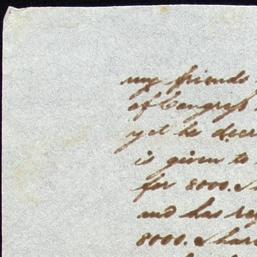 my friends
of Congress
yet he decr
is given to
for 8000. S
and has re
8000. Shar